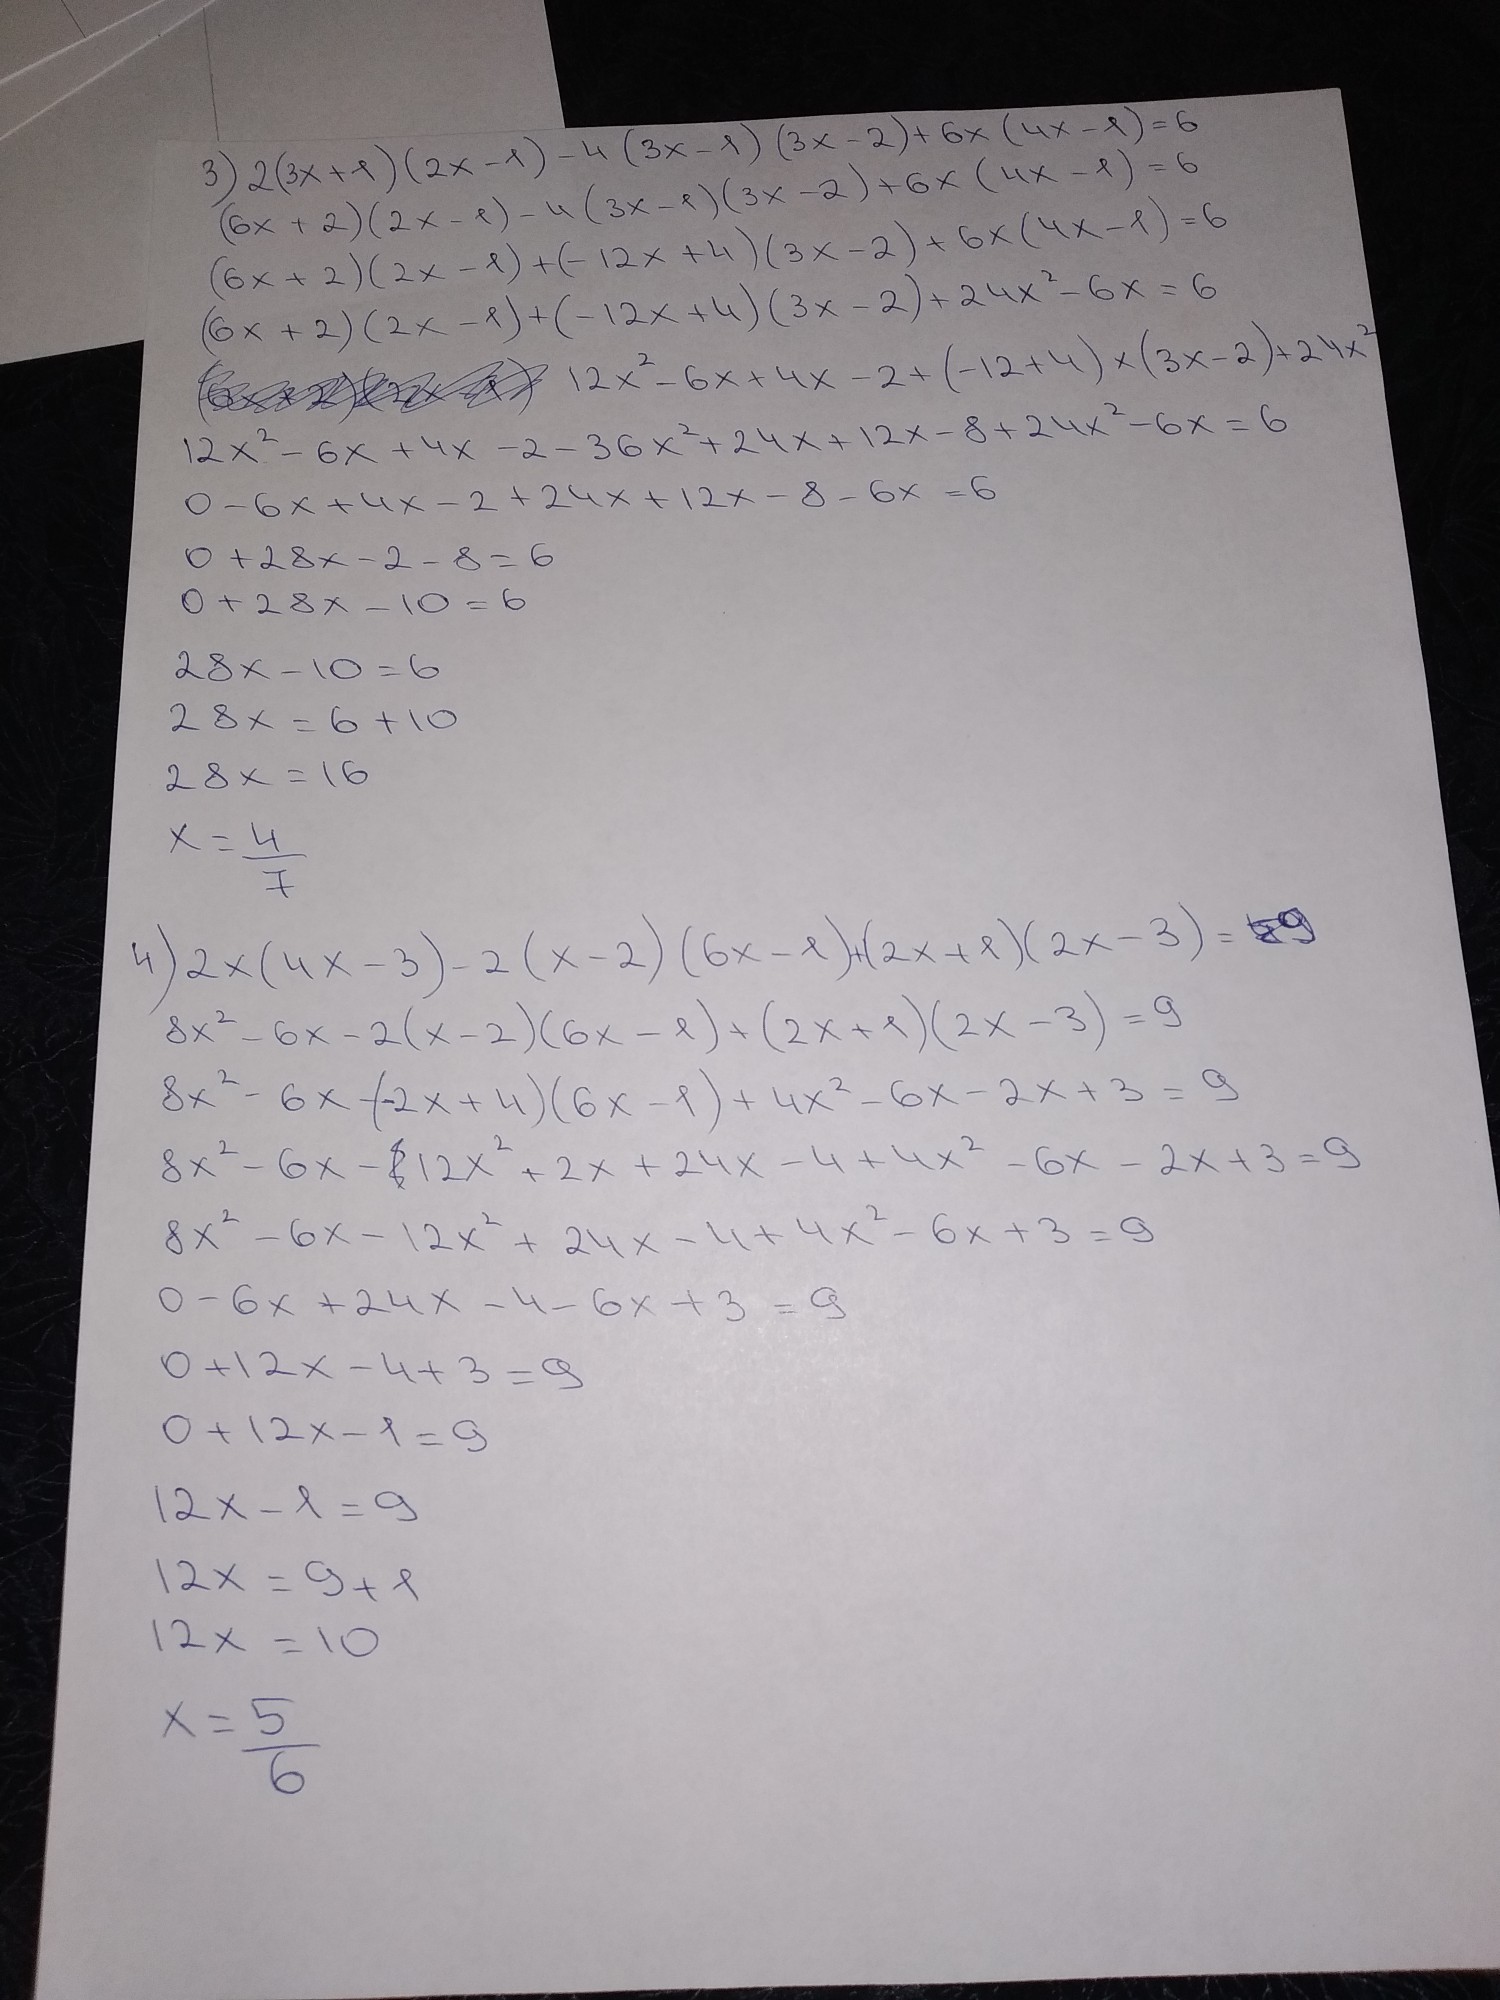 3) 2(3x+1)(2x-1)-4(3x-1)(3x-2)+6x(4x-1)=6
(6x+2)(2x-1)-4(3x-1)(3x-2)+6x(4x-1)=6
(6x+2)(2x-1)+(-12x+4)(3x-2)+6x(4x-1)=6
(6x+2)(2x-1)+(-12x+4)(3x-2)+24x²-6x=6
12x²-6x+4x-2+(-12+4)x(3x-2)+24x²
12x²-6x+4x-2-36x²+24x+12x-8+24x²-6x=6
0-6x+4x-2+24x+12x-8-6x=6
0+28x-2-8=6
0+28x-10=6
28x-10=6
28x=6+10
28x=16
x=4/7
4) 2x(4x-3)-2(x-2)(6x-1)+(2x+1)(2x-3)=9
8x²-6x-2(x-2)(6x-1)+(2x+1)(2x-3)=9
8x²-6x-(-2x+4)(6x-1)+4x²-6x-2x+3=9
8x²-6x-12x²+2x+24x-4+4x²-6x-2x+3=9
8x²-6x-12x²+24x-4+4x²-6x+3=9
0-6x+24x-4-6x+3=9
0+12x-4+3=9
0+12x-1=9
12x-1=9
12x=9+1
12x=10
x=5/6